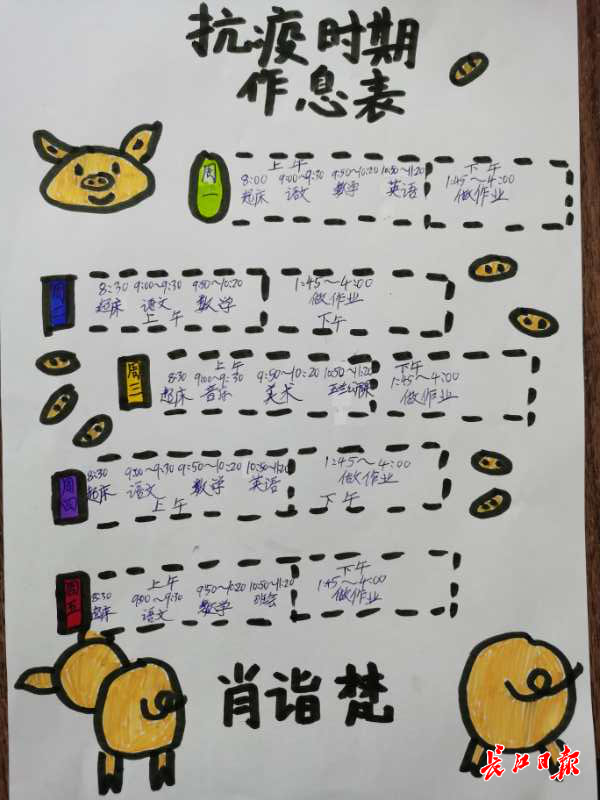 抗疫时期
作息表
周一
上午
8:00 9:00~9:30 9:50~10:20 10:50~11:20
起床 语文 数学 英语
下午
1:45~4:00
做作业
周二
8:30 9:00~9:30 9:50~10:20
起床 语文 数学
上午
1:45~4:00
做作业
下午
周三
上午
8:30 9:00~9:30 9:50~10:20 10:50~11:20
起床 音乐 美术
下午
1:45~4:00
做作业
周四
8:30 9:00~9:30 9:50~10:20 10:50~11:20
起床 语文 数学 英语
上午
1:45~4:00
做作业
下午
周五
上午
8:30 9:00~9:30 9:50~10:20 10:50~11:20
起床 语文 数学 班会
下午
1:45~4:00
做作业
肖诣梵
长江日报